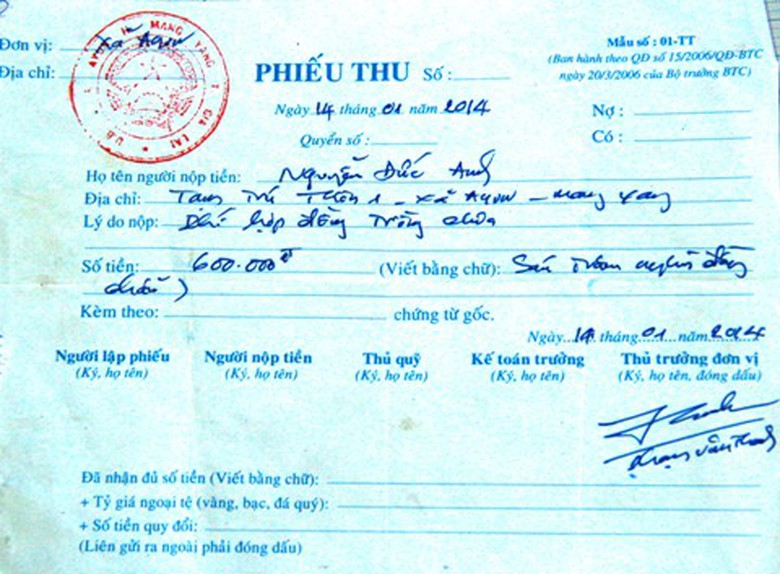 Đơn vị: Xã Ayun
Mẫu số : 01-TT
Địa chỉ:
(Ban hành theo QĐ số 15/2006/QĐ-BTC
ngày 20/3/2006 của Bộ trưởng BTC)
PHIẾU THU Số :
Ngày 14 tháng 01 năm 2014
Quyển số :
Nợ :
Có :
Họ tên người nộp tiền: Nguyễn Đức Anh
Địa chỉ: Tạm Trú Thôn 1 - Xã Ayun - mang yang
Lý do nộp: Phí hợp đồng Trồng
Số tiền: 600.000đ (Viết bằng chữ): Sáu trăm nghìn đồng
chẵn)
Kèm theo: chứng từ gốc.
Ngày 14 tháng 01 năm 2014
Người lập phiếu Người nộp tiền Thủ quỹ Kế toán trưởng Thủ trưởng đơn vị
(Ký, họ tên) (Ký, họ tên) (Ký, họ tên) (Ký, họ tên) (Ký, họ tên, đóng dấu)
Phạm Văn
Đã nhận đủ số tiền (Viết bằng chữ):
+ Tỷ giá ngoại tệ (vàng, bạc, đá quý):
+ Số tiền quy đổi:
(Liên gửi ra ngoài phải đóng dấu)